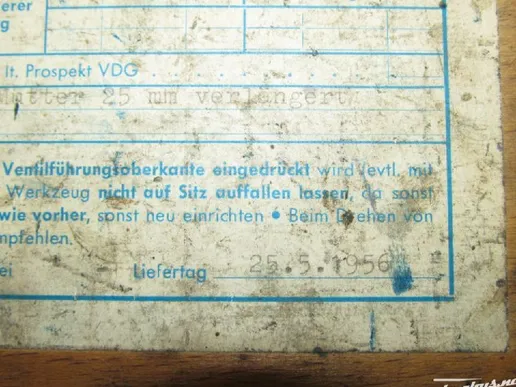 erer
g
lt. Prospekt VDG
25 mm verlängert
Ventilführungsoberkante eingedrückt wird (evtl. mit
Werkzeug nicht auf Sitz auffallen lassen, da sonst
wie vorher, sonst neu einrichten • Beim Drehen von
mpfehlen.
ei Liefertag 25.5.1956